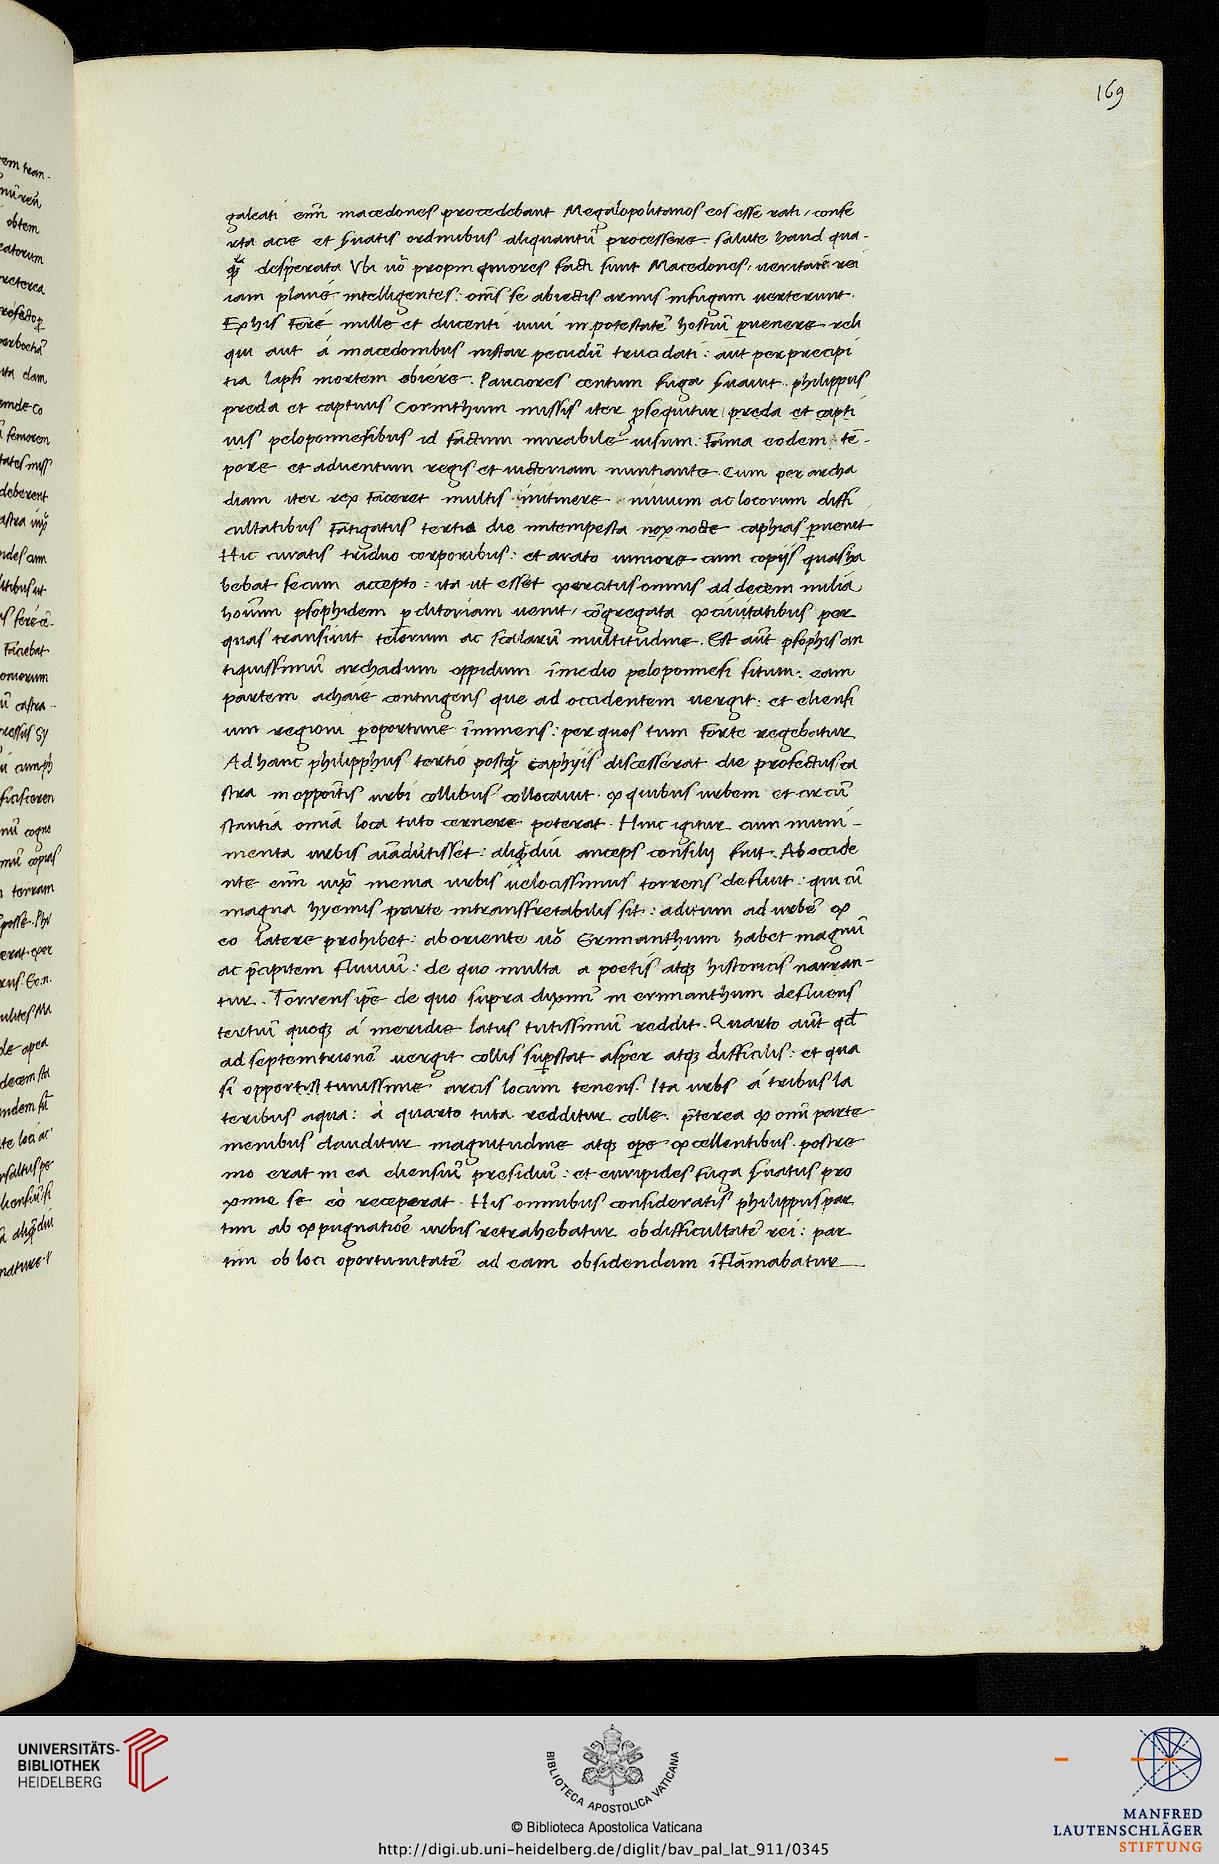 169
galeati em̄ macedones procedebant Megalopolitanos eos esse rati, confe
rta acie et ẜuatis ordinibus aliquantū processere. salute haud qua-
q̄ desperata Vbi uo᷑ propinquiores facti sunt Macedones, ueritatē rei
iam plane intelligentes: om̄s se abiectis armis infugam uerterunt.
Ex his fere mille et ducenti uiui in potestatē hostiū ꝑuenere reli
qui aut á macedonibus instar pecudū trucidati: aut per precipi
tia lapsi mortem obiere. Pauciores centum fuga ẜuauit. philippus
preda et captiuis Corinthum missis iter ꝓsequitur preda et capti
uis peloponnesibus id factum mirabile uisum. Fama eodem tē-
pore et aduentum regis et uictoriam nuntiante. Cum per archa
diam iter rex faceret multis initinere niuium ac locorum diffi
cultatibus fatigatus tertia die intempesta nox nocte caphias ꝑuenit
Hic curatis triduo corporibus: et arato iuniore cum copijs quas ha
bebat secum accepto: ita ut esset exercitus omnis ad decem milia
hoīum psophidem ꝑ clitoriam uenit, cōgregata ex ciuitatibus per
quas transiuit telorum ac scalarū multitudine. Est aūt psophis an
tiquissimū archadum oppidum īmedio peloponnesi situm: eam
partem achaie contingens que ad occidentem uergit: et eliensi
um regioni ꝑoportune īminens: per quos tum forte regebatur
Ad hanc philipphus tertio postq̄ caphyis discesserat die profectus, ca
stra in oppoītis urbi collibus collocauit. ex quibus urbem et circū
stantia omia loca tuto cernere poterat. Hinc igitur cum muni-
menta urbis aīaduertisset: aliq̄diu anceps consilij fuit. Ab occide
nte em̄ iuxͣ menia urbis uelocissimus torrens defluit: qui cū
magna hyemis parte intransfretabilis sit: aditum ad urbē ex
eo latere prohibet: ab oriente uo᷑ Erimanthum habet magnū
ac p̄cipitem fluuiū: de quo multa a poetis atqꝫ historicis narran-
tur. Torrens ip̄e de quo supra diximꝰ in erimanthum defluens
tertiū quoqꝫ á meridie latus tutissimū reddit. Quarto aūt qd̄
ad septemtrionē uergit collis suꝑstat asper atqꝫ difficilis: et qua
si opportunissime arcis locum tenens. Ita urbs á tribus la
teribus aqua: à quarto tuta redditur colle. p̄terea ex omī parte
menibus clauditur magnitudine atqꝫ oꝑe excellentibus. postre
mo erat in ea eliensiū presidiū: et euripides fuga ẜuatus pro
xime se eò receperat. His omnibus consideratis philippus par
tim ab expugnatiōe urbis retrahebatur ob difficultatē rei: par
tim ob loci oportunitatē ad eam obsidendam īflāmabatur
UNIVERSITÄTS-
BIBLIOTHEK
HEIDELBERG
BIBLIOTECA APOSTOLICA VATICANA
© Biblioteca Apostolica Vaticana
http://digi.ub.uni-heidelberg.de/diglit/bav_pal_lat_911/0345
MANFRED
LAUTENSCHLÄGER
STIFTUNG